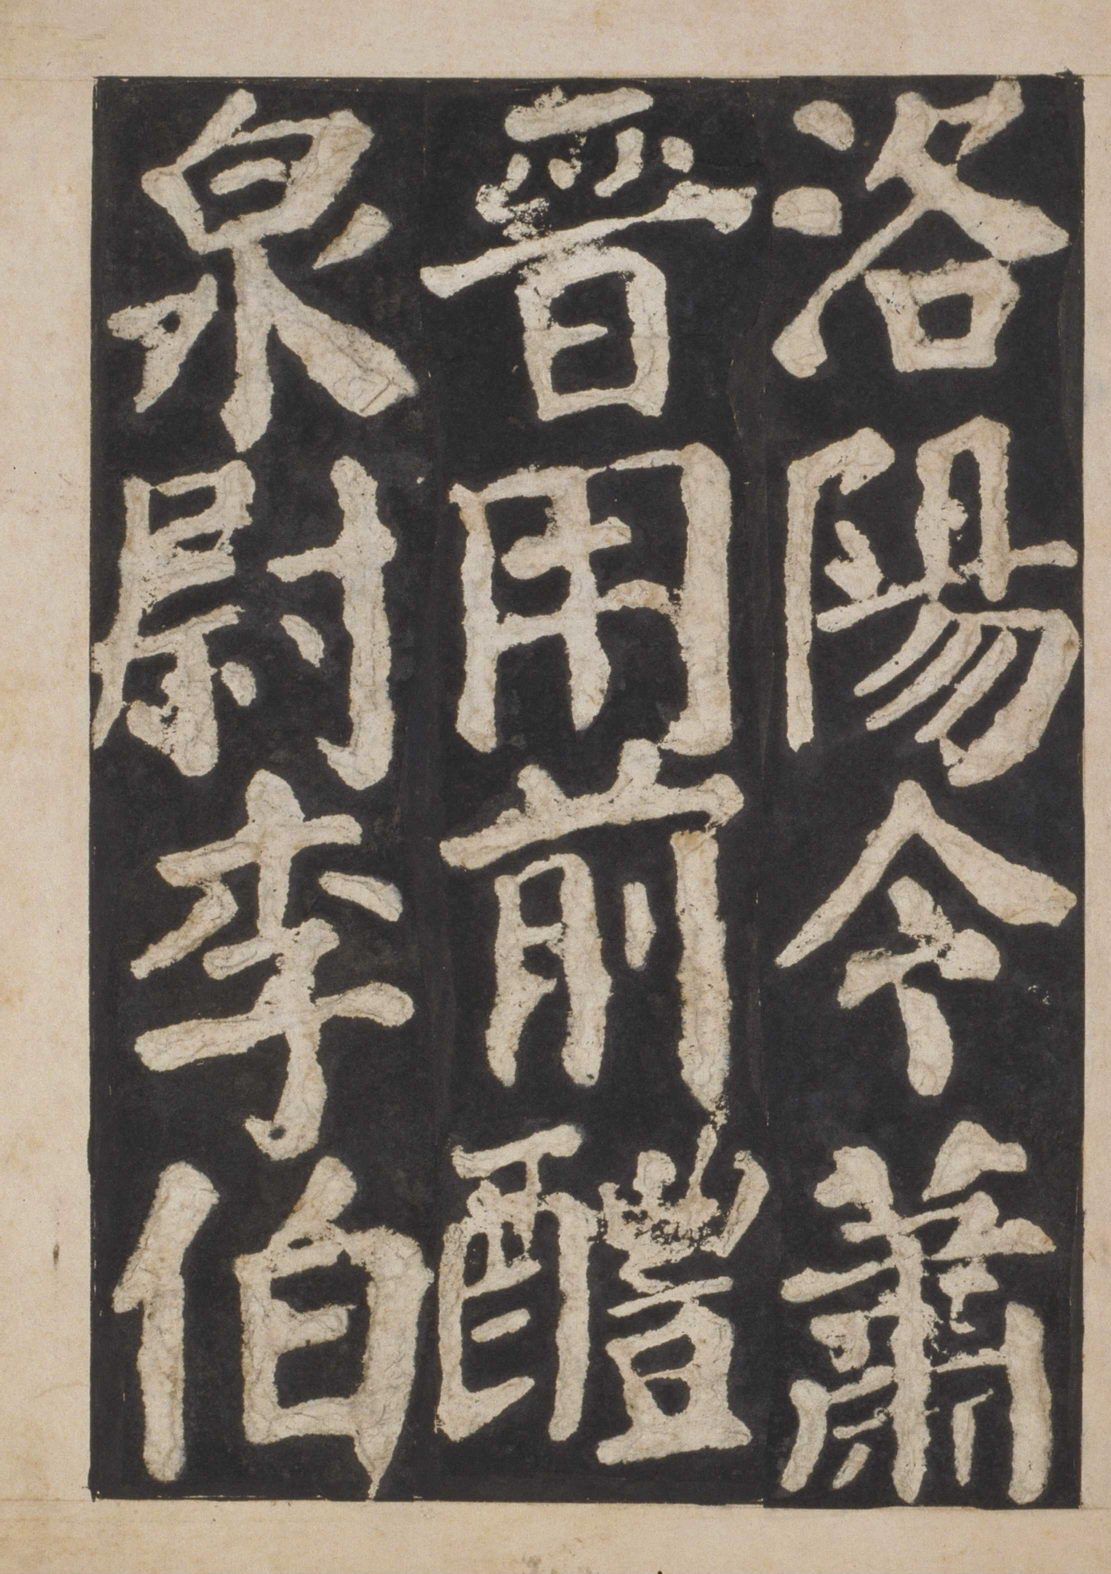 洛陽令蕭
晉用前醴
泉尉李伯